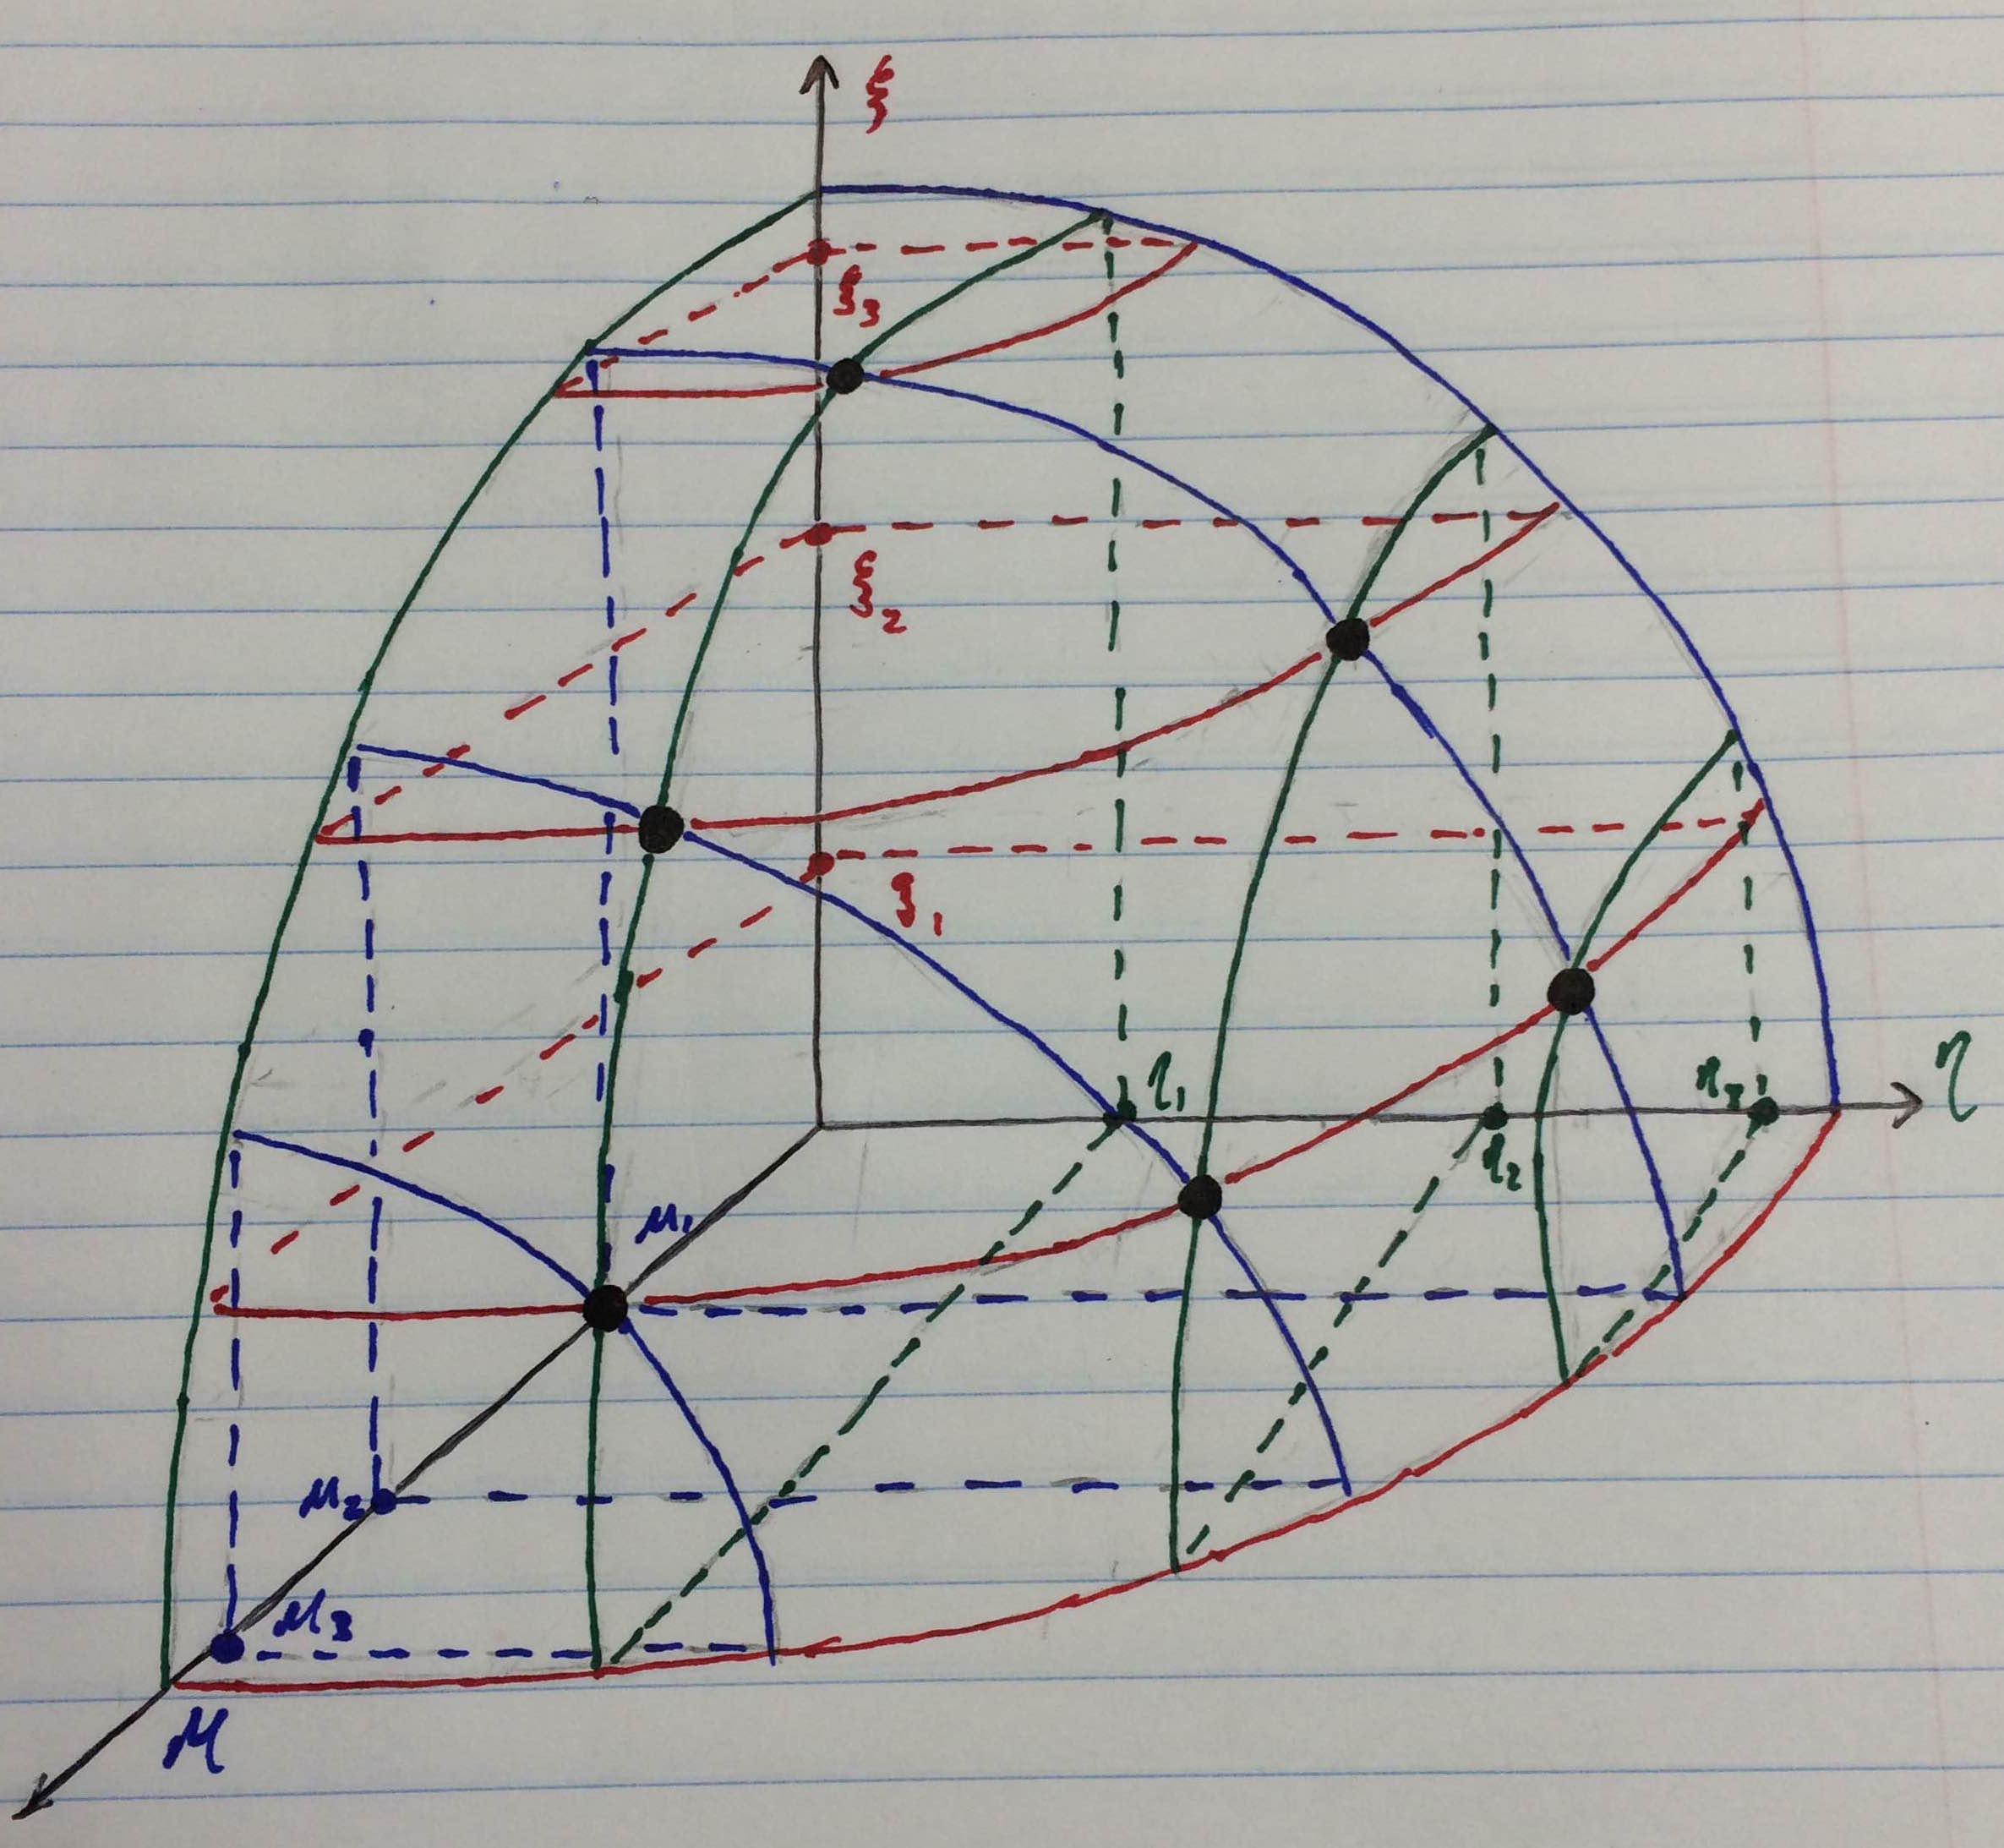 ξ
ξ₃
ξ₂
ξ₁
η₁
η₃
η
η₂
μ₁
μ₂
μ₃
μ